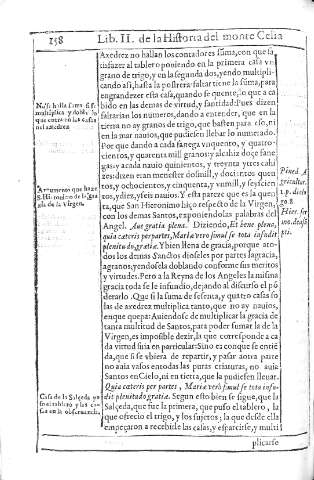 158
Lib. II. de la Historia del monte Celia
Axedrez no hallan los contadores suma, con que sa
tisfazer al tablero poniendo en la primera casa vn
grano de trigo, y en la segunda dos, yendo multipli-
cando assi, hasta la postrera: saltar tiene la suma, para
engrandezer esta casa, quando se quente, lo que a cabi
do en las demas de virtud, y santidad: Pues dizen
faltarian los numeros, dando a entender, que en la
tierra no ay granos de trigo, que basten para eso, ni
en la mar nauios, que pudiessen lleuar lo numerado.
Por que dando a cada fanega cinquento, y quatro-
cientos, y quarenta mil granos: y alcahiz doze fane
gas: y acada nauio quinientos, y treynta y tres cahi
zes: dizen eran menester dosmill, y docientos quen
tos, y ochocientos, y cinquenta, y vn mill, y seyscien
tos, y diez, y seis nauios. Y esta parece que es la quen
ta, que San Hieronimo hizo respecto de la Virgen,
con los demas Santos, exponiendo las palabras del
Angel. Aue gratia plena. Diziendo, Et bene plena,
quia cateris per partes, Mariæ vero simul se tota infudit
plenitudo gratiæ. Y bien llena de gracia, porque ato-
dos los demas Sanctos dioseles por partes la gracia,
a granos; yendosela doblando conforme sus meritos
y virtudes. Pero a la Reyna de los Angeles la misma
gracia toda se le infundio, dejando al discurso el po
derarlo. Que si la suma de sesenta, y quatro casas so
las de axedrez multiplica tanto, que no ay nauios,
en que quepa: Auiendose de multiplicar la gracia de
tanta multitud de Santos, para poder sumar la de la
Virgen, es imposible dezir, la que corresponde a ca
da virtud suia en particular: Sino es que se entien
da, que si se vbiera de repartir, y pasar a otra parte
no auia vasos en todas las puras criaturas, no auia
Santos en Cielo, ni en tierra, que la pudiesen lleuar.
Quia cateris per partes, Mariæ vero simul se tota infu-
dit plenitudo gratiæ. Segun esto bien se sigue, que la
Salçeda, que fue la primera, que puso el tablero, la
que ofrecio el trigo, y los sujetos; la que desde ella
empeçaron a recebirse las casas, y esparcirse, y multi
plicarse
No se halla suma si se
multiplica y dobla lo
que entra en las casas
del axedrez
Argumento que haze
S. Hieronimo de la gra
cia de la Virgen.
Casa de la Salçeda
en la obseruancia.
Pined. A
gricultur.
1. p. dialo
go. 8.
Hier. ser
no. de assũ
pti.